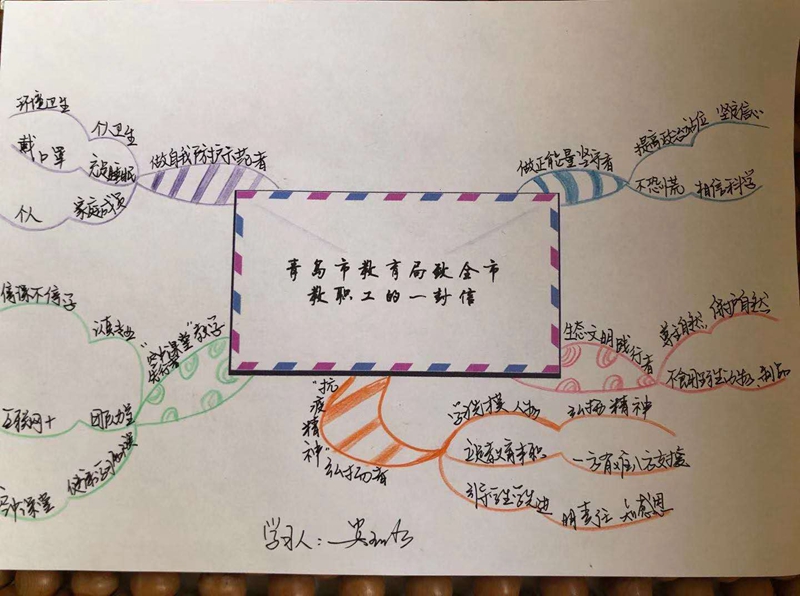 青岛市教育局致全市
教职工的一封信
做自我防护示范者
环境卫生
个人卫生
戴口罩
充足睡眠
个人
家庭成员
做正能量坚守者
提高政治站位 坚定信心
不恐慌 相信科学
生态文明践行者
尊重自然,保护自然
不食用野生动物,制品
教学
停课不停学
认真专业
互联网+
团队力量
空中课堂
"抗疫精神"弘扬者
学优模人物 弘扬精神
立足教育本职 一方有难八方支援
引导 明责任 知感恩
学习人: